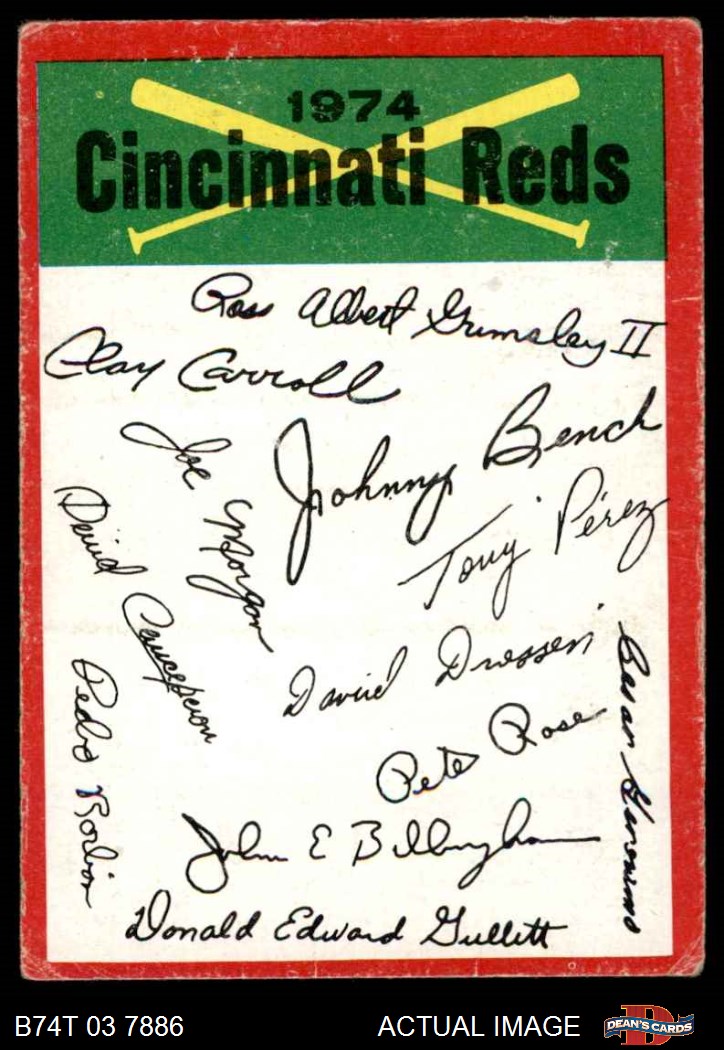 1974
Cincinnati Reds
Ross Albert Grimsley II
Clay Carroll
Johnny Bench
Joe Morgan
Tony Pérez
David Concepcion
David Driessen
Cesar Geronimo
Pedro Borbon
Pete Rose
John E Billingham
Donald Edward Gullett
B74T 03 7886
ACTUAL IMAGE
DEAN'S CARDS